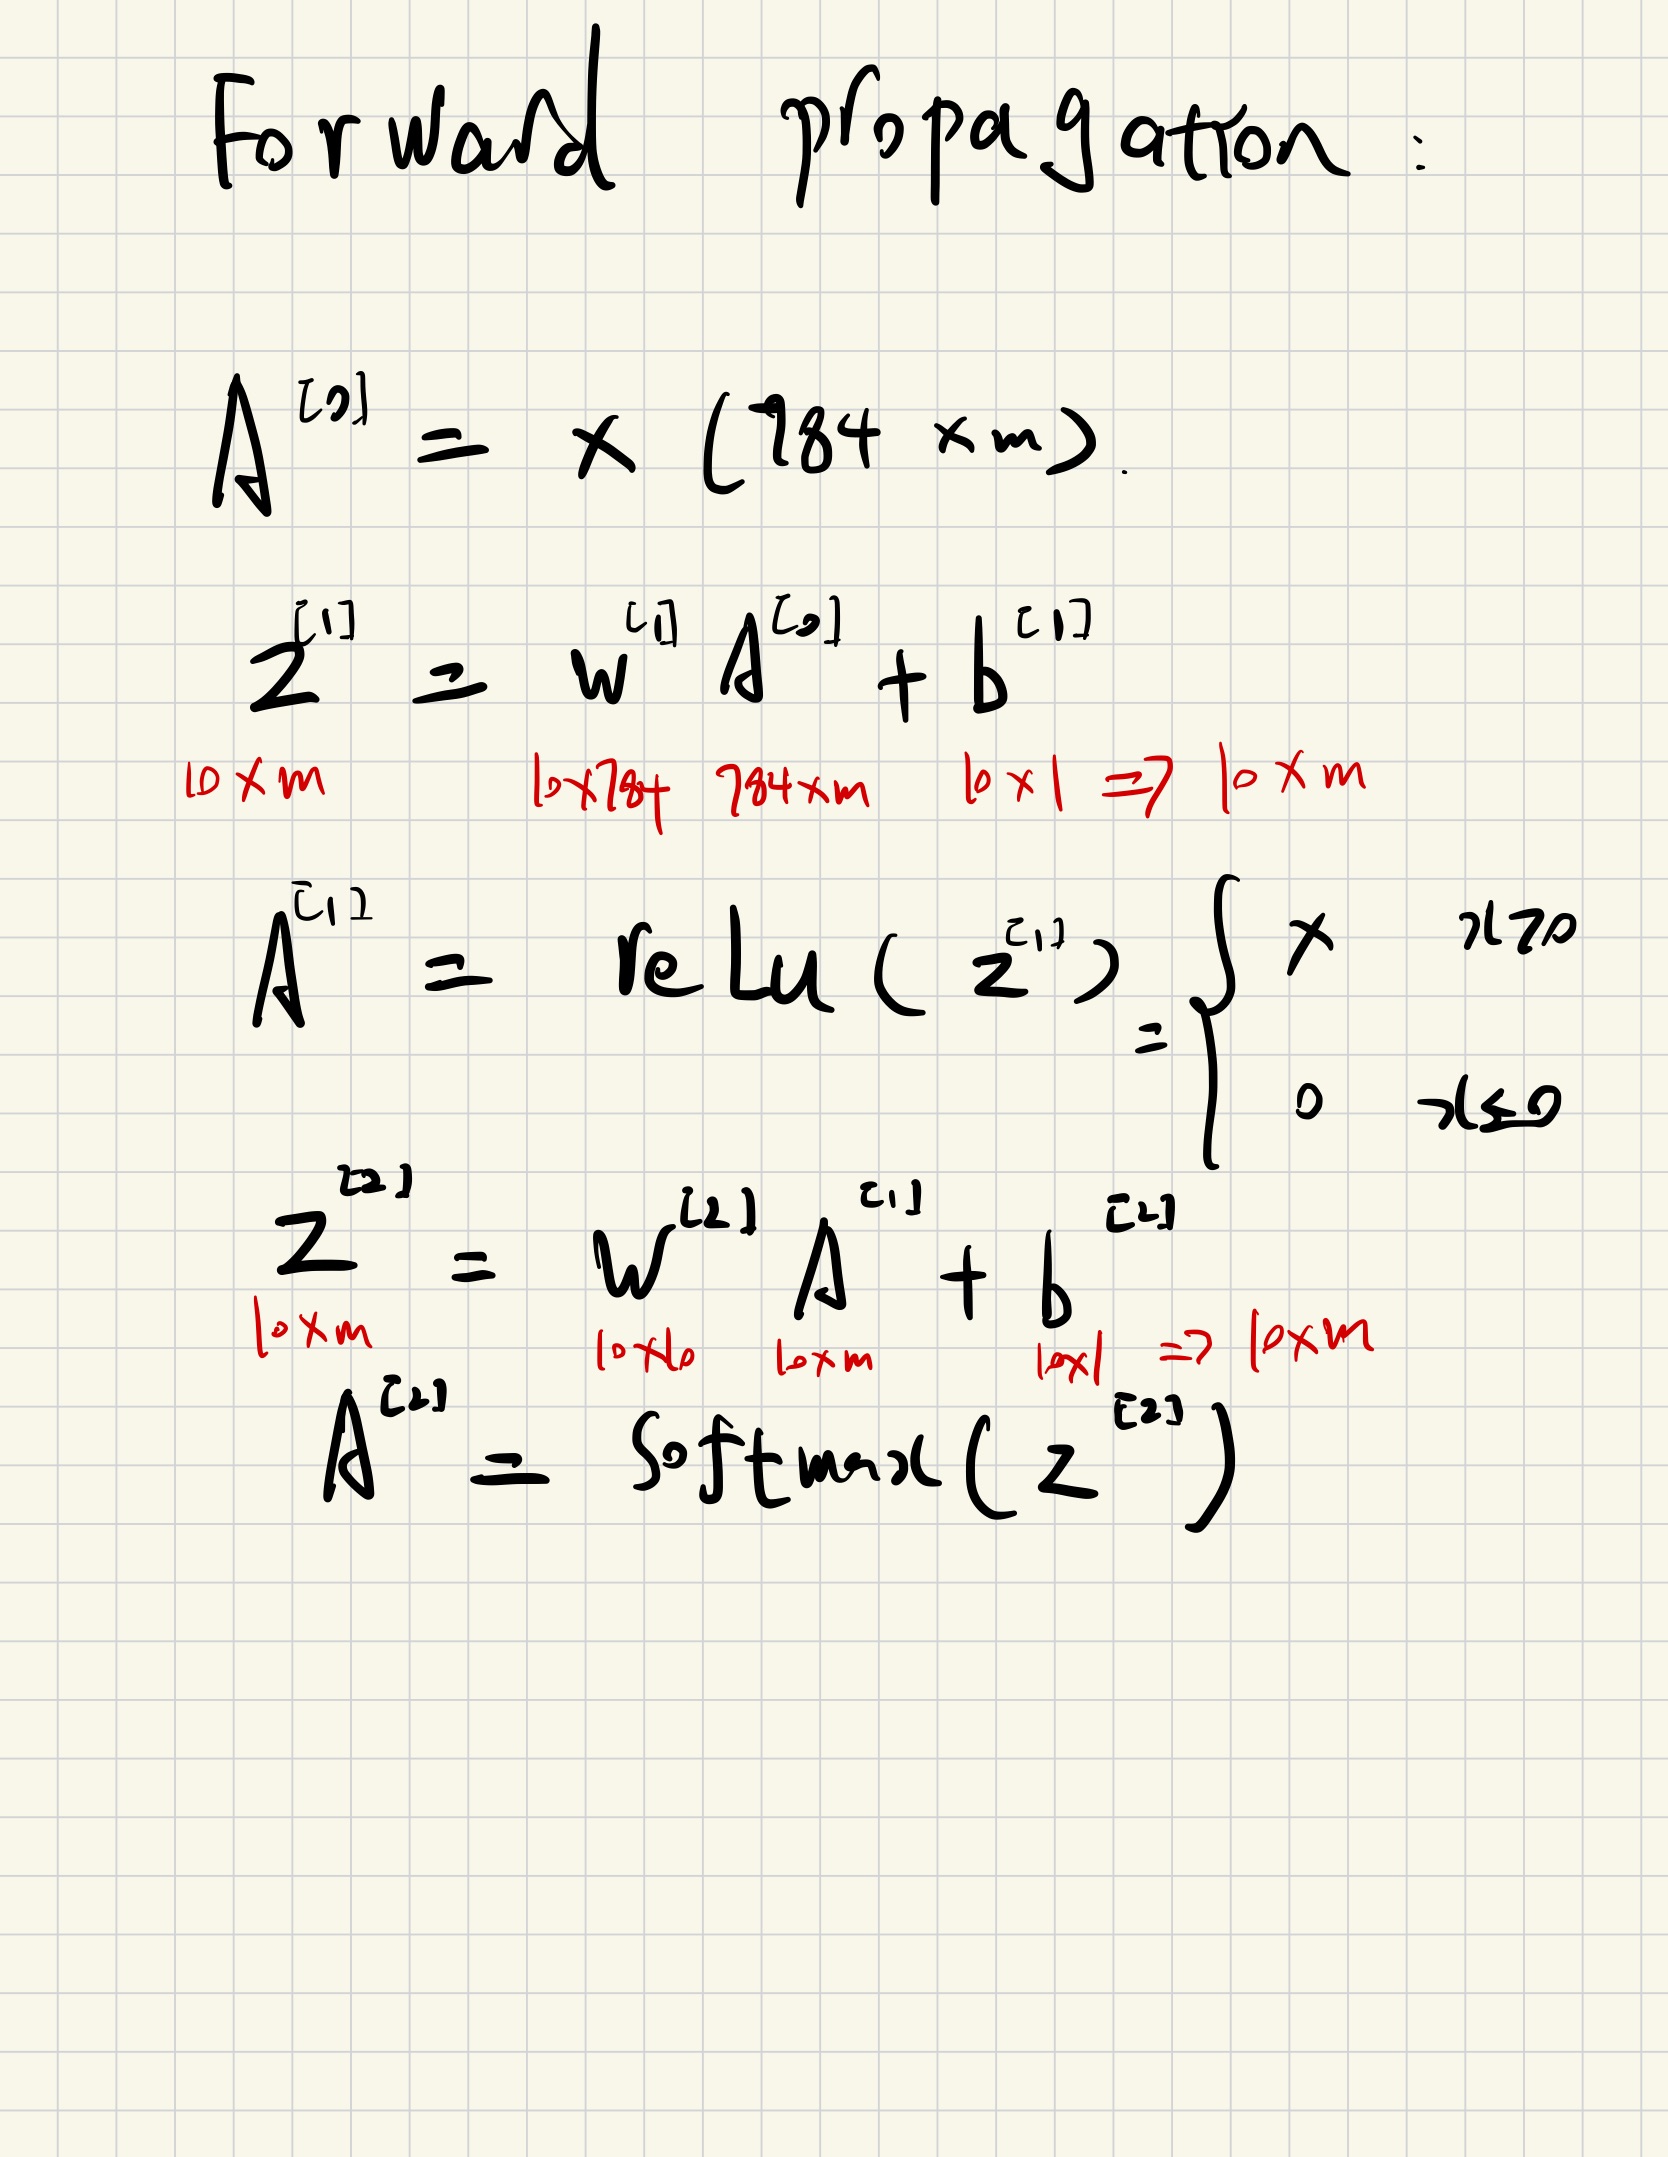 Forward propagation :
A^[0] = x (784 x m).
Z^[1] = W^[1] A^[0] + b^[1]
10 x m 10x784 784xm 10 x 1 => 10 x m
A^[1] = reLu ( z^[1] ) = { x x>0
0 x≤0
Z^[2] = W^[2] A^[1] + b^[2]
10xm 10x10 10xm 10x1 => 10xm
A^[2] = Softmax ( z^[2] )